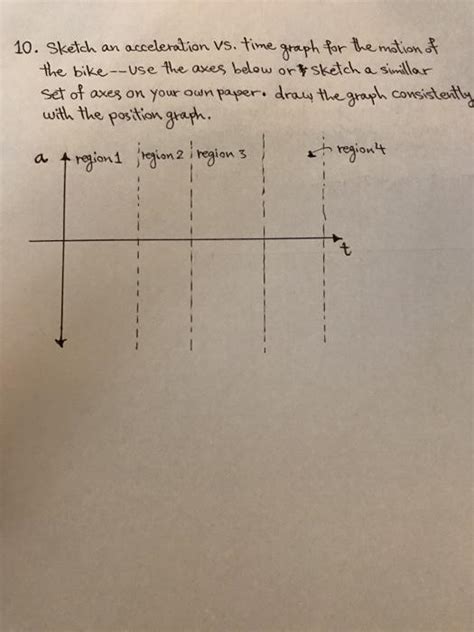 10. Sketch an acceleration vs. time graph for the motion of
the bike--use the axes below or sketch a simillar
set of axes on your own paper. draw the graph consistently
with the position graph.
a region 1 region 2 region 3 region 4
t